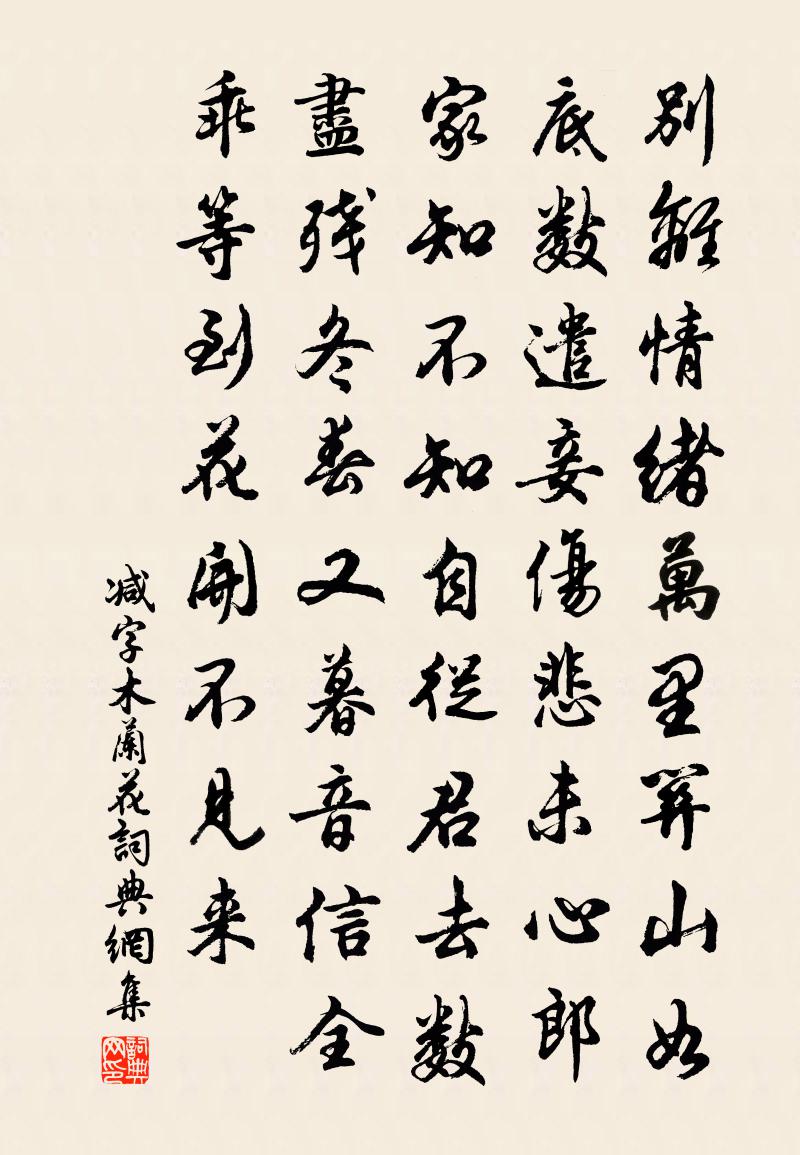 別離情緒萬里關山如
底数遣妾傷悲未心郎
家知不知自從君去数
盡残冬春又暮音信全
乖等到花開不見来
减字木蘭花詞典網集
詞典网印